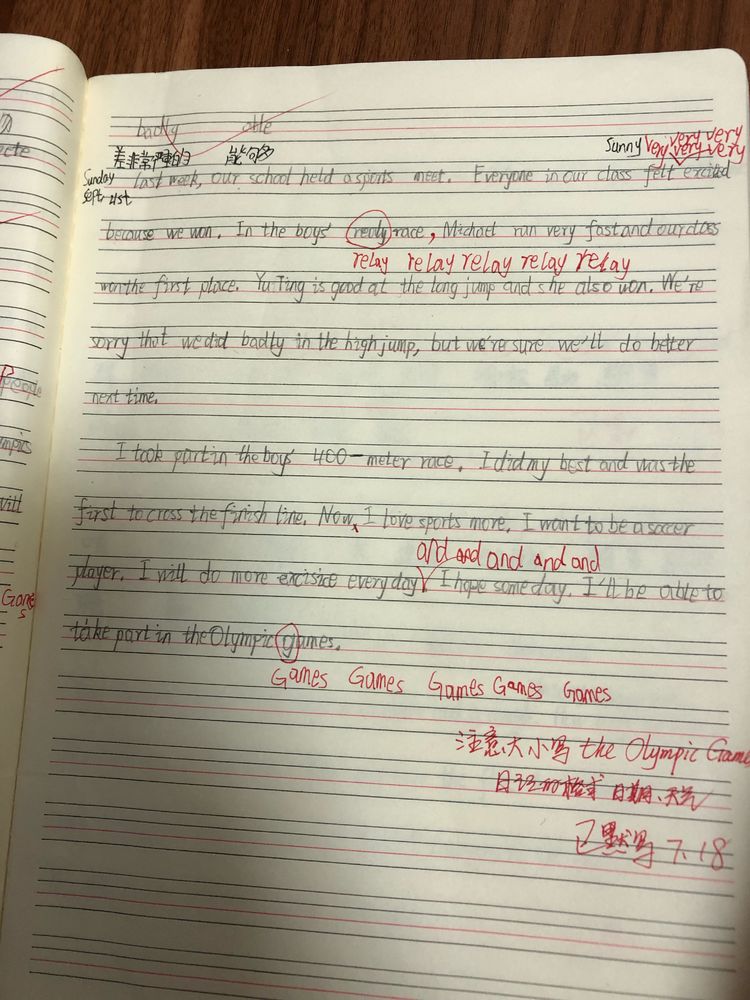 badly able
差非常严重的 能够
Sunny very very very
very very very
Sunday
Sept. 21st
last week, our school held a sports meet. Everyone in our class felt excited
because we won. In the boys' realy race, Michael run very fast and our class
relay relay relay relay relay
won the first place. Yu Ting is good at the long jump and she also won. We're
sorry that we did badly in the high jump, but we're sure we'll do better
next time.
I took part in the boys' 400-meter race. I did my best and was the
first to cross the finish line. Now, I love sports more. I want to be a soccer
and and and and and
player. I will do more excisice every day. I hope some day. I'll be able to
take part in the Olympic games.
Games Games Games Games Games
注意大小写 the Olympic Game
日记的格式 日期、天气
已默写 7.18
People
mpics
will
Game
s